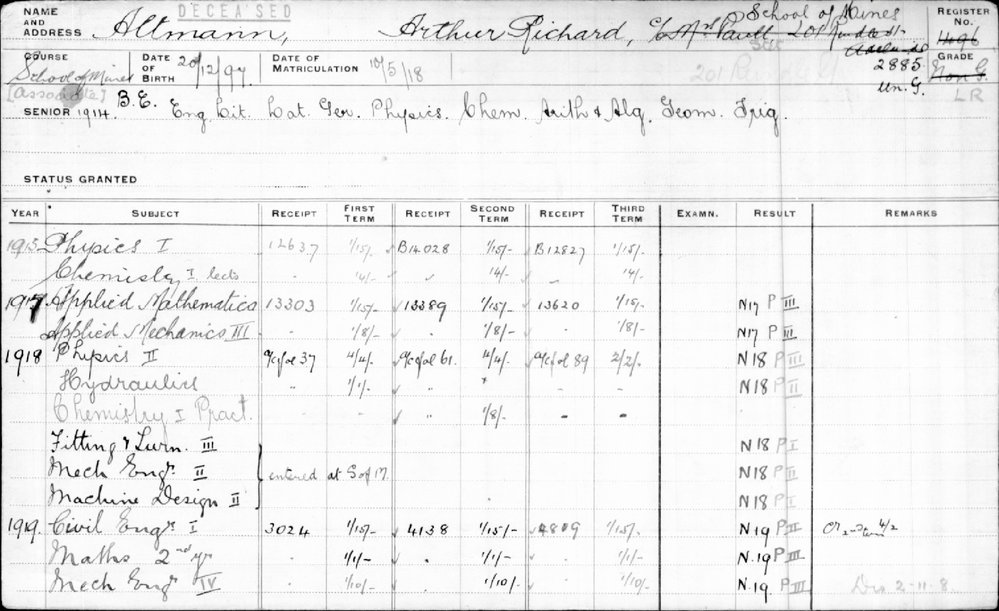 DECEASED
School of Mines
NAME AND ADDRESS Altmann, Arthur Richard, c/o Mrs 201 Rundle St Adelaide REGISTER No. 1496
2885
COURSE School of Mines [Associate] DATE OF BIRTH 20/12/97 DATE OF MATRICULATION 10/5/18 201 Un. G. GRADE Non G. LR
B.E.
SENIOR 1914. Eng. Lit. Lat. Ger. Physics. Chem. Arith & Alg. Geom. Trig.
STATUS GRANTED
YEAR SUBJECT RECEIPT FIRST TERM RECEIPT SECOND TERM RECEIPT THIRD TERM EXAMN. RESULT REMARKS
1915 Physics I 12637 1/15/- B14028 1/15/- B12827 1/15/-
Chemistry I lects " 14/- " 14/- " 14/-
1917 Applied Mathematics 13303 1/15/- 13389 1/15/- 13620 1/15/- N17 P III
Applied Mechanics III " 1/8/- " 1/8/- " 1/8/- N17 P III
1918 Physics II a/c fol 37 4/4/- a/c fol 61. 4/4/- a/c fol 89 2/2/- N18 P III
Hydraulics " 1/1/- " " - - N18 P II
Chemistry I Pract. " 1/8/- - -
Fitting & Turn. III N18 P I
Mech Engr. II entered at S of M. N18 P II
Machine Design II N18 P I
1919. Civil Engr. I 3024 1/15/- 4138 1/15/- 4819 1/15/- N19 P II Cr 2nd term 4/2
Maths 2nd yr " 1/1/- " 1/1/- " 1/1/- N.19 P III
Mech Engr IV " 1/10/- " 1/10/- " 1/10/- N.19 P III 2-11-8.